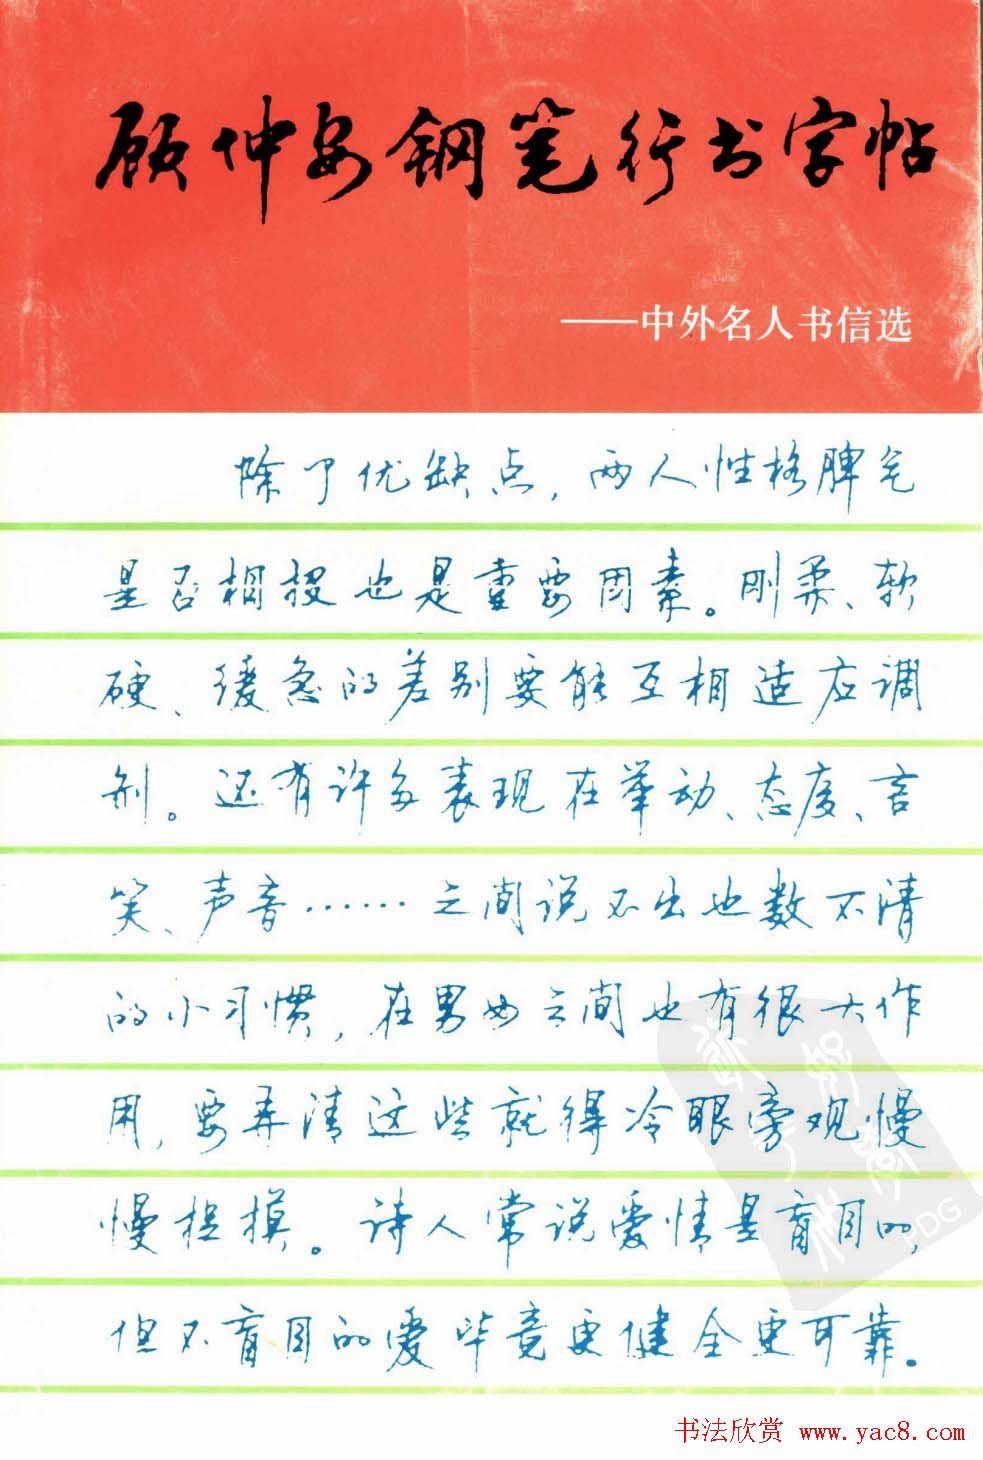 顾仲安钢笔行书字帖
——中外名人书信选
除了优缺点，两人性格脾气
是否相投也是重要因素。刚柔、软
硬、缓急的差别要能互相适应调
剂。还有许多表现在举动、态度、言
笑、声音……之间说不出也数不清
的小习惯，在男女之间也有很大作
用，要弄清这些就得冷眼旁观慢
慢捉摸。诗人常说爱情是盲目的，
但不盲目的爱毕竟更健全更可靠。
PDG
书法欣赏 www.yac8.com